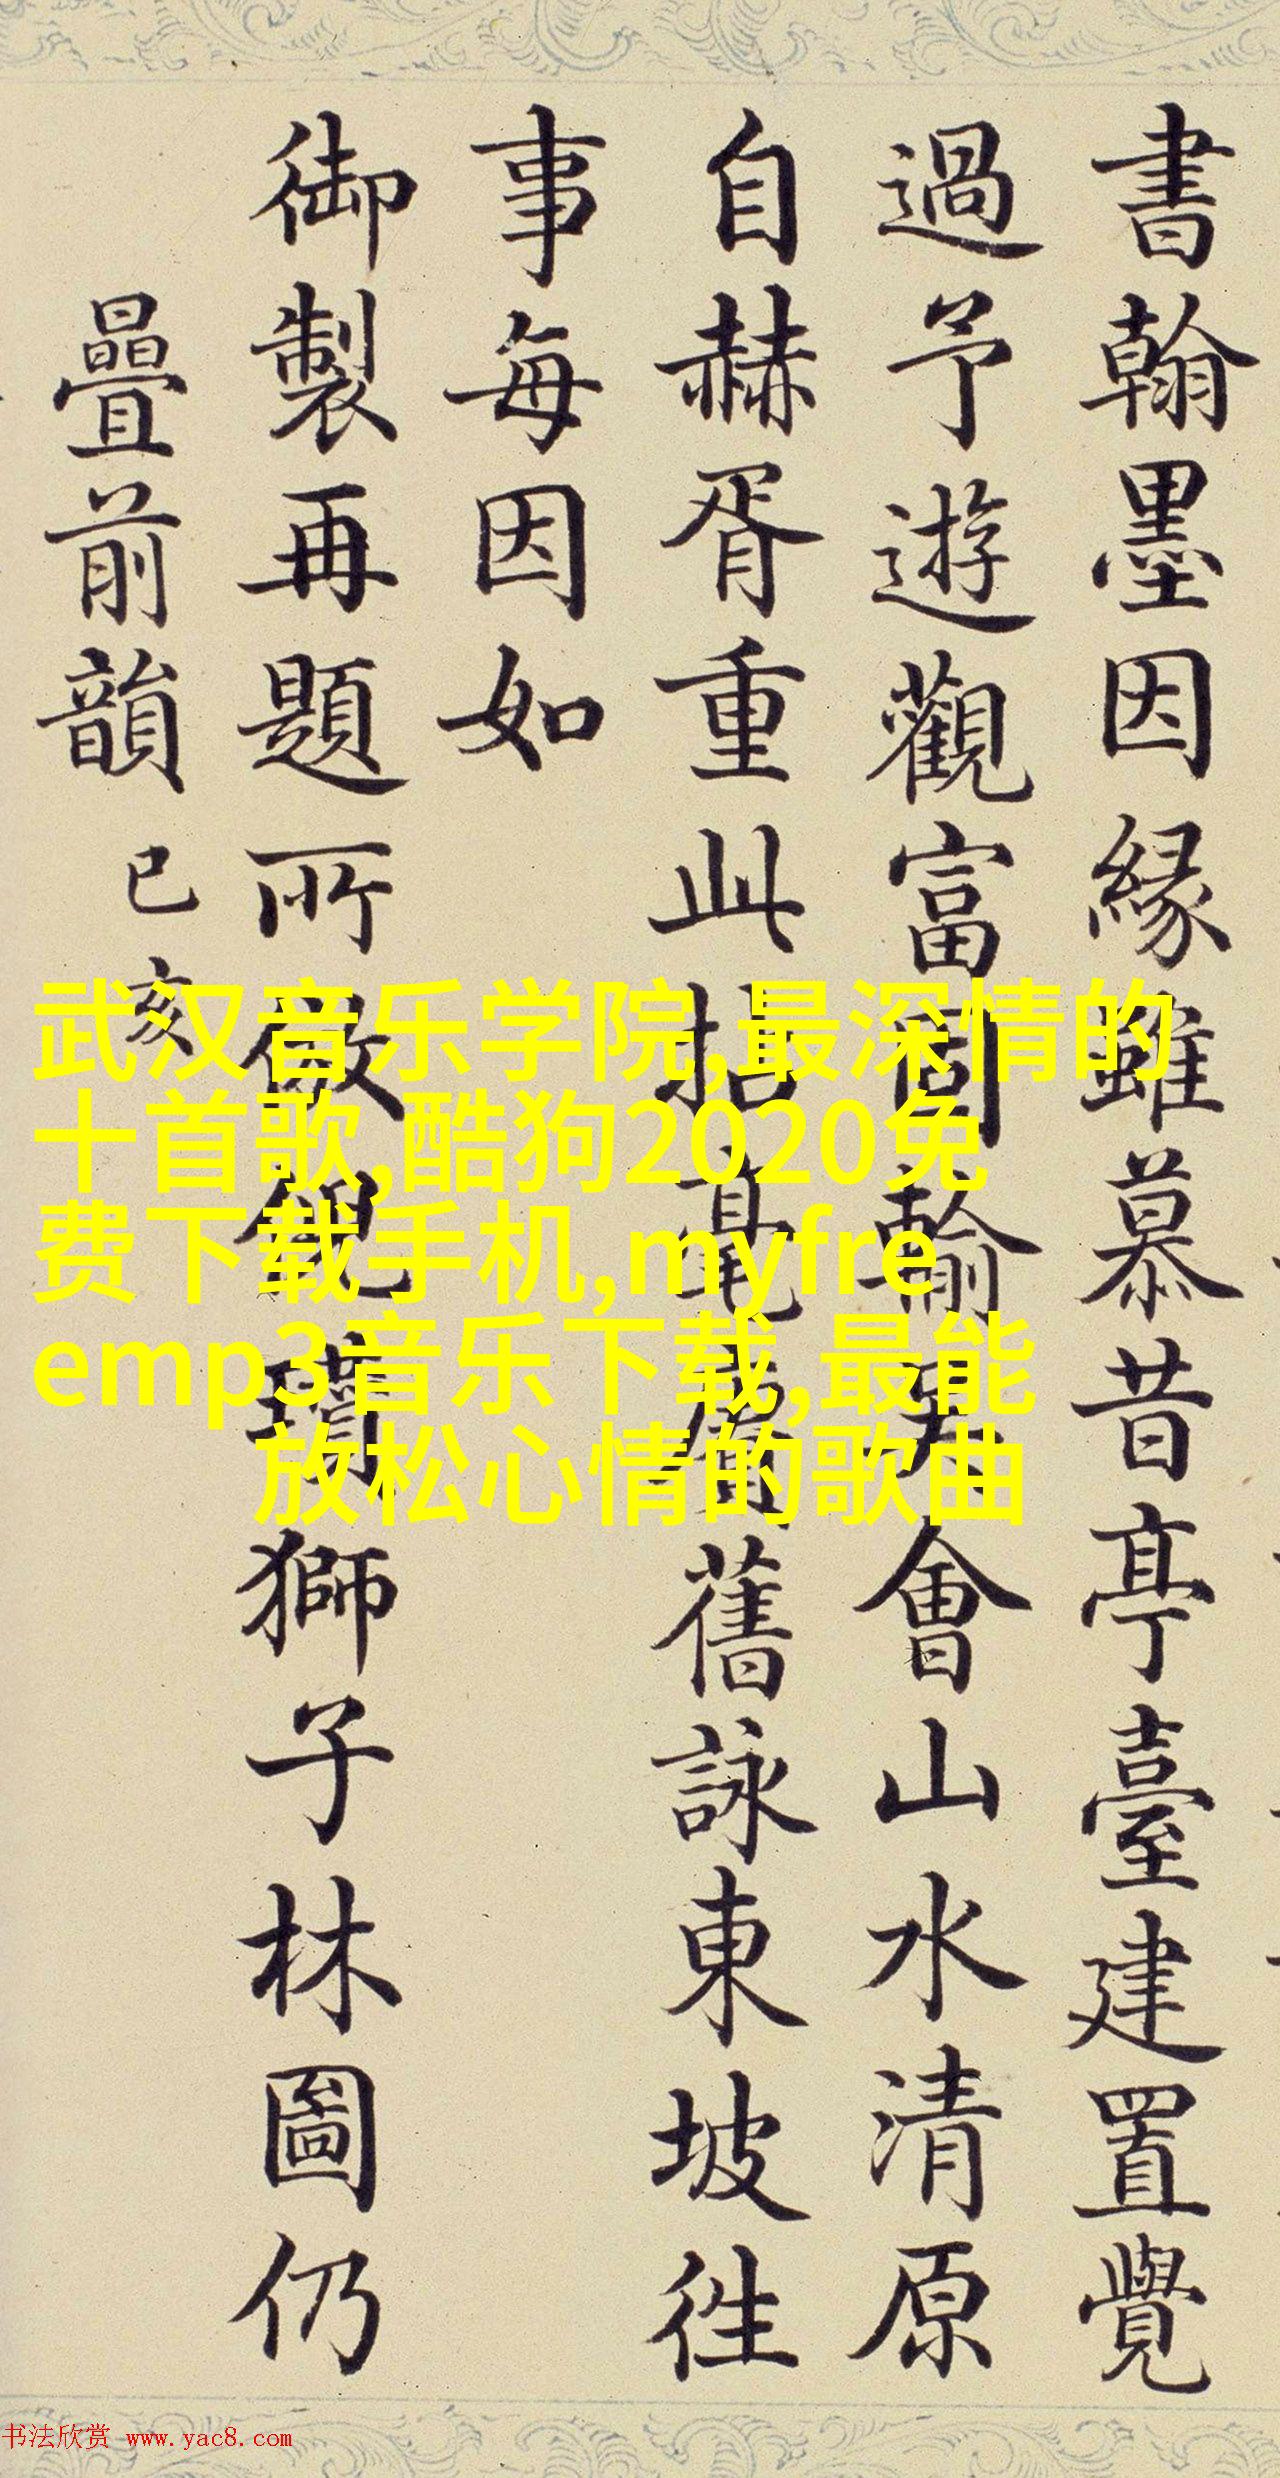 書翰墨因緣雖慕昔亭臺建置覺
過予遊觀富岡輸矣會山水清原
自赫胥重此拈毫賡舊詠東坡徃
事每因如
御製再題所倣倪瓚獅子林圖仍
疊前韻 已亥
武汉音乐学院,最深情的
十首歌,酷狗2020免
费下载手机,myfre
emp3音乐下载,最能
放松心情的歌曲
书法欣赏 www.yac8.com